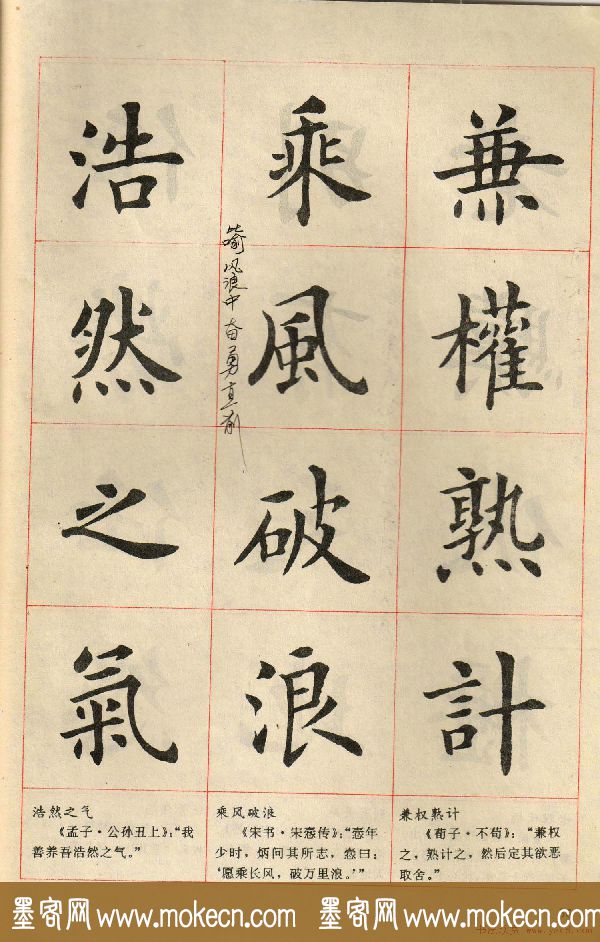 兼權熟計
乘風破浪
喻风浪中奋勇直前
浩然之氣
兼权熟计
《荀子·不苟》：“兼权
之，熟计之，然后定其欲恶
取舍。”
乘风破浪
《宋书·宋悫传》：“悫年
少时，炳问其所志，悫曰：
‘愿乘长风，破万里浪。’”
浩然之气
《孟子·公孙丑上》：“我
善养吾浩然之气。”
墨客网 www.mokecn.com 墨客网 www.mokecn.com